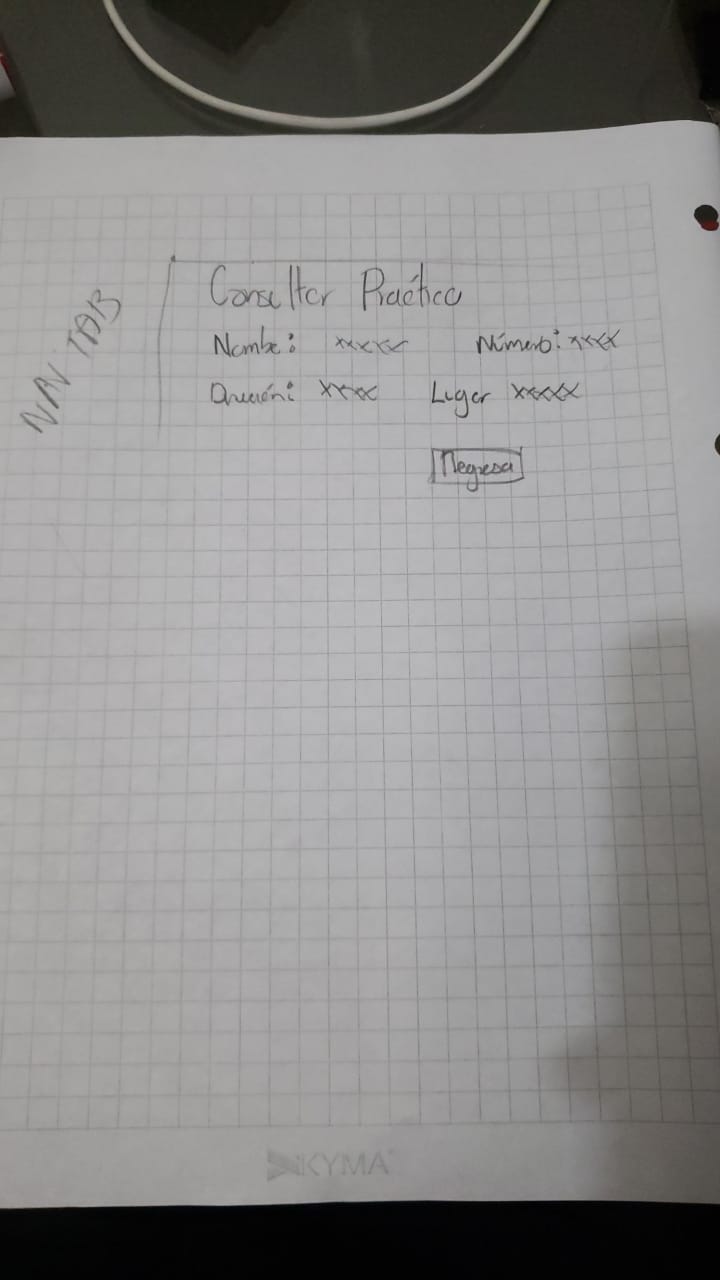 NAV TAB
Consultar Práctica
Nombre: xxxxx Número: xxxx
Duración: xxxx Lugar xxxxx
Regresa
KYMA